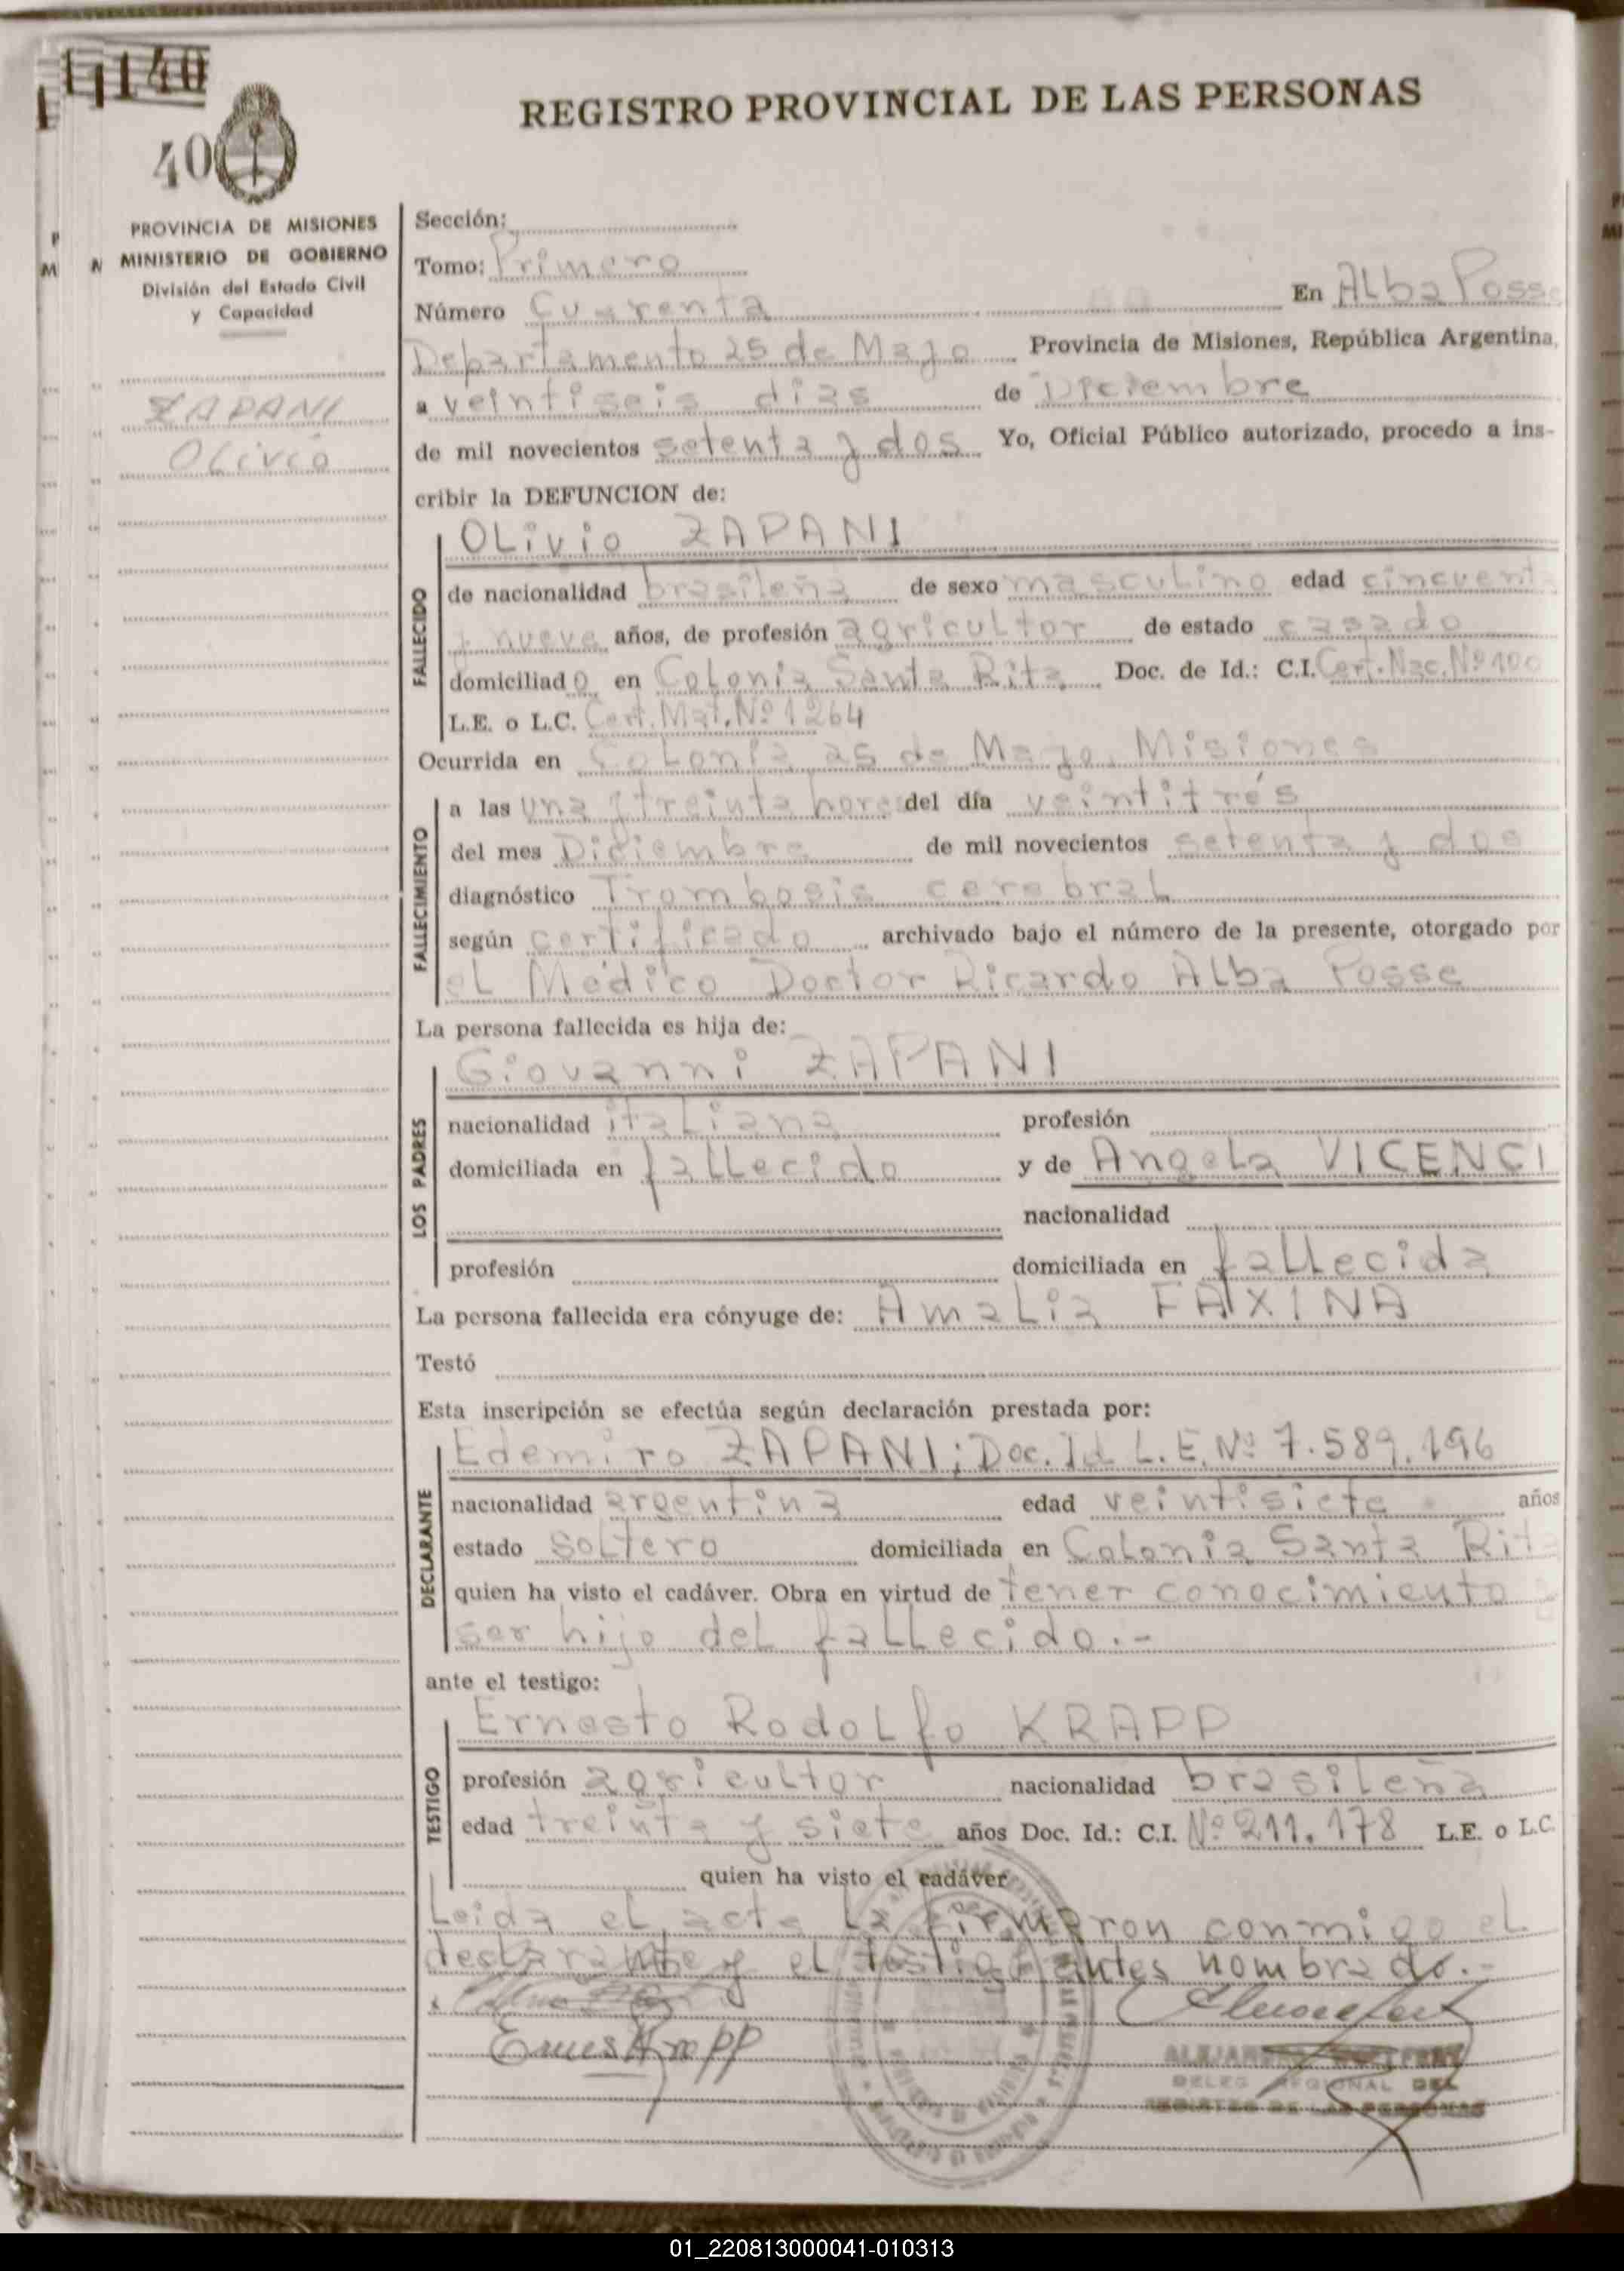 140
40
REGISTRO PROVINCIAL DE LAS PERSONAS
PROVINCIA DE MISIONES
MINISTERIO DE GOBIERNO
División del Estado Civil
y Capacidad
ZAPANI
Olivio
Sección:
Tomo: Primero
Número Cuarenta En Alba Posse
Departamento 25 de Mayo Provincia de Misiones, República Argentina,
a veintiseis dias de Diciembre
de mil novecientos setenta y dos Yo, Oficial Público autorizado, procedo a ins-
cribir la DEFUNCION de:
FALLECIDO
Olivio ZAPANI
de nacionalidad brasileña de sexo masculino edad cincuent
y nueve años, de profesión agricultor de estado casado
domiciliado en Colonia Santa Rita Doc. de Id.: C.I. Cert. Nac. Nº 100
L.E. o L.C. Cert. Mat. Nº 1264
Ocurrida en Colonia 25 de Mayo, Misiones
FALLECIMIENTO
a las una y treinta horas del día veintitrés
del mes Diciembre de mil novecientos setenta y dos
diagnóstico Trombosis cerebral
según certificado archivado bajo el número de la presente, otorgado por
el Médico Doctor Ricardo Alba Posse
La persona fallecida es hija de:
LOS PADRES
Giovanni ZAPANI
nacionalidad italiana profesión
domiciliada en fallecido y de Angela VICENCI
nacionalidad
profesión domiciliada en fallecida
La persona fallecida era cónyuge de: Amalia FAXINA
Testó
Esta inscripción se efectúa según declaración prestada por:
DECLARANTE
Edemiro ZAPANI; Doc. Id L.E. Nº 7.589.196
nacionalidad argentina edad veintisiete años
estado soltero domiciliada en Colonia Santa Rita
quien ha visto el cadáver. Obra en virtud de tener conocimiento
ser hijo del fallecido.-
ante el testigo:
TESTIGO
Ernesto Rodolfo KRAPP
profesión agricultor nacionalidad brasileña
edad treinta y siete años Doc. Id.: C.I. Nº 211.178 L.E. o L.C.
quien ha visto el cadáver
Leida el acta la firmaron conmigo el
declarante y el testigo antes nombrado.-
Ernes Krapp
DELEG REGIONAL DEL
REGISTRO DE LAS PERSONAS
01_220813000041-010313